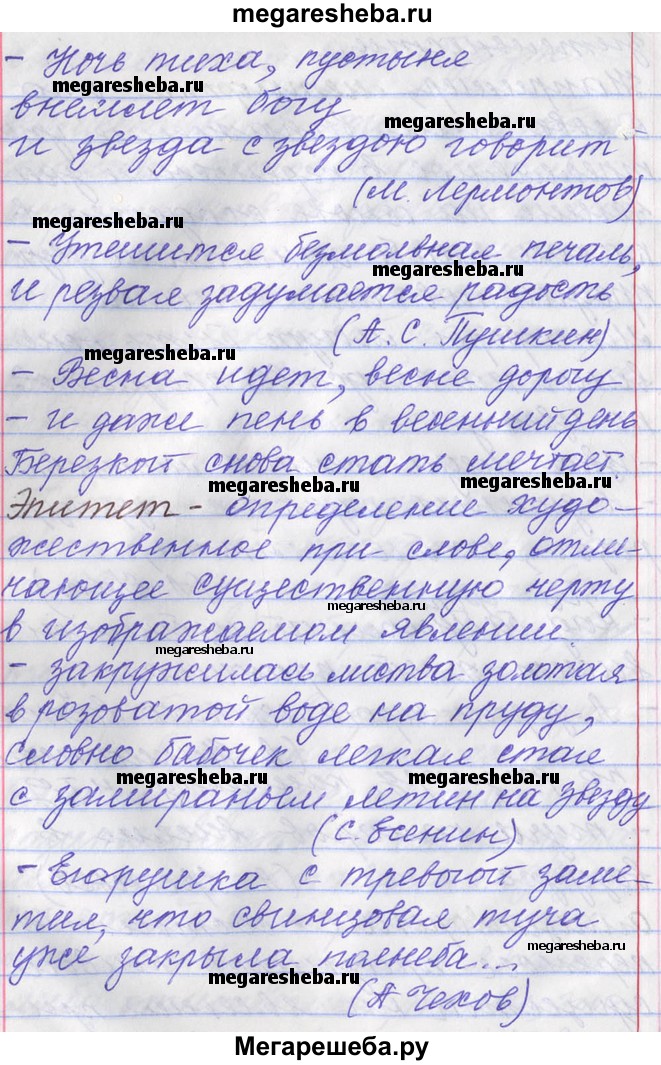 megaresheba.ru
- Ночь тиха, пустыня
megaresheba.ru
внемлет богу
megaresheba.ru
и звезда с звездою говорит
(М. Лермонтов)
megaresheba.ru
- Утешится безмолвная печаль,
megaresheba.ru
И резвая задумается радость
(А. С. Пушкин)
megaresheba.ru
- Весна идет, весне дорогу
- и даже пень в весенний день
Березкой снова стать мечтает.
megaresheba.ru megaresheba.ru
Эпитет - определение худо-
жественное при слове, отли-
чающее существенную черту
megaresheba.ru
в изображаемом явлении.
megaresheba.ru
- закружилась листва золотая
в розоватой воде на пруду,
словно бабочек легкая стая
megaresheba.ru megaresheba.ru
с замираньем летит на звезду
(С. Есенин)
- Егорушка с тревогой заме-
тил, что свинцовая туча
megaresheba.ru
уже закрыла полнеба...
megaresheba.ru
(А Чехов)
Мегарешеба.ру